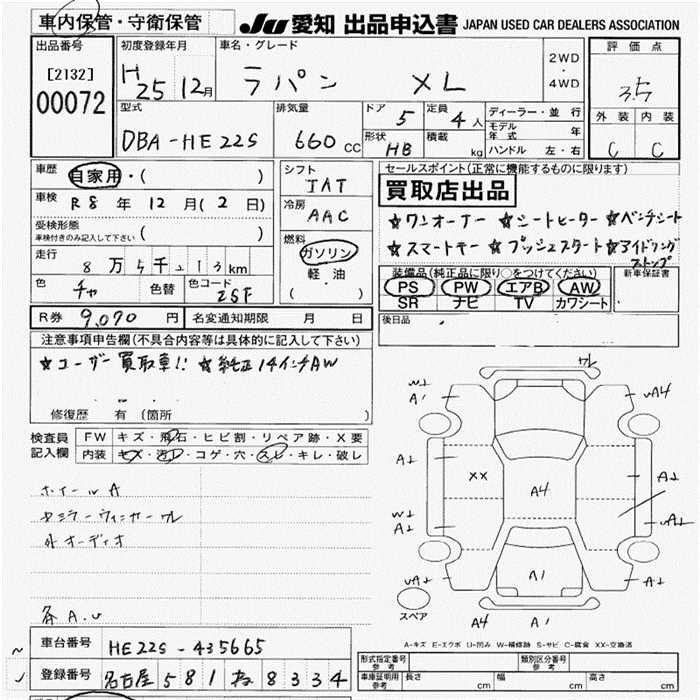 車内保管・守衛保管
JU 愛知 出品申込書 JAPAN USED CAR DEALERS ASSOCIATION
出品番号
[2132]
00072
初度登録年月
H25 12月
車名・グレード
ラパン XL
2WD
・
4WD
評価点
3.5
外装 内装
C C
型式
DBA-HE22S
排気量
660 CC
ドア 5
定員 4人
形状 HB
積載 kg
ディーラー・並行
モデル年式 年
ハンドル 左・右
車歴
自家用・( )
車検 R8年 12月(2日)
受検形態
車検付きのみ記入して下さい ( )
走行
8万5千213km
色 チャ 色替 色コード ZSF
シフト
IAT
冷房
AAC
燃料
ガソリン
軽油
( )
R券 9,070円 名変通知期限 月 日
セールスポイント(正常に機能するものに限ります)
買取店出品
☆ワンオーナー ☆シートヒーター ☆ベンチシート
☆スマートキー ☆プッシュスタート ☆アイドリング
ストップ
装備品(純正品に限り○をつけてください) 新車保証書
PS PW エアB AW
SR ナビ TV カワシート
後日品
注意事項申告欄(不具合内容等は具体的に記入して下さい)
☆ユーザー買取車!! ☆純正14インチAW
修復歴 有(箇所 )
検査員記入欄
FW キズ・飛石・ヒビ割・リペア跡・X要
内装 キズ・汚レ・コゲ・穴・スレ・キレ・破レ
ホイールA
外オーディオ
ワレ
A1
A4
A1
XX
A4
A1
A1
A1
スペア
A4 A1
A-キズ E-エクボ U-凹み W-補修跡 S-サビ C-腐食 XX-交換済
車台番号 HE22S-435665
登録番号 名古屋 581 ね 8334
形式指定番号 参考 類別区分番号 参考
車庫証明用 参考 長さ cm 幅 cm 高さ cm